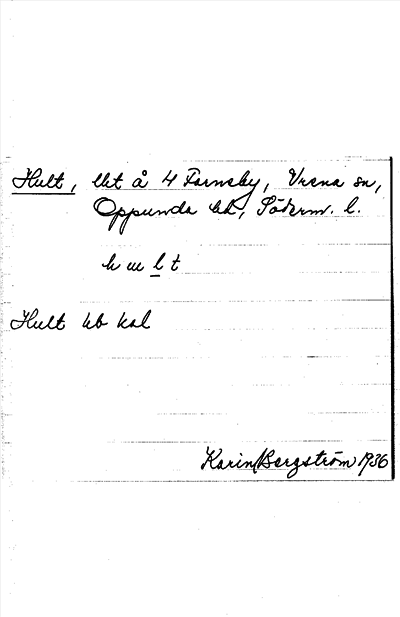 Hult, lht å 4 Farnsby, Vrena sn,
Oppunda hd, Söderm. l.
h u l t
Hult kb kal
Karin Bergström 1936